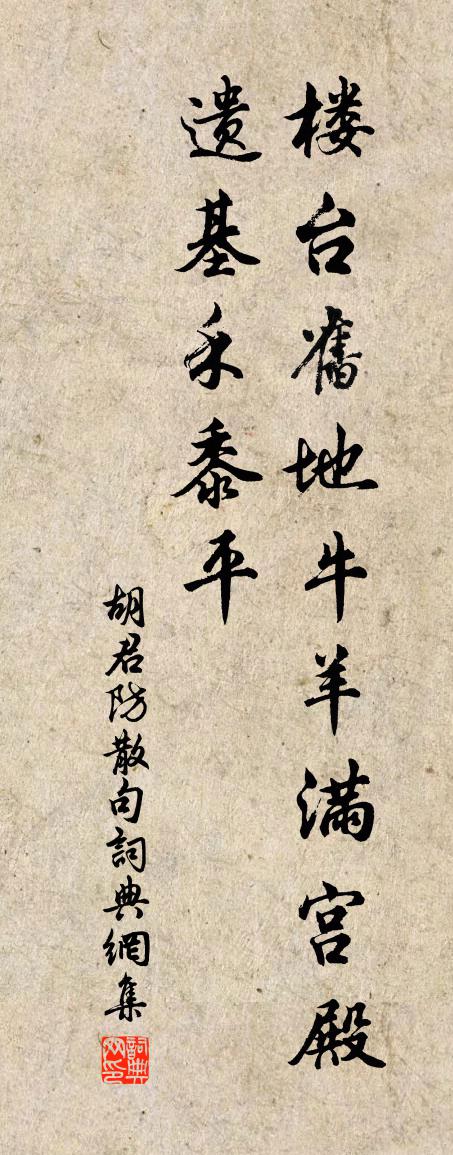 楼台舊地牛羊满宫殿
遗基禾黍平
胡君防散句詞典網集
詞典网印